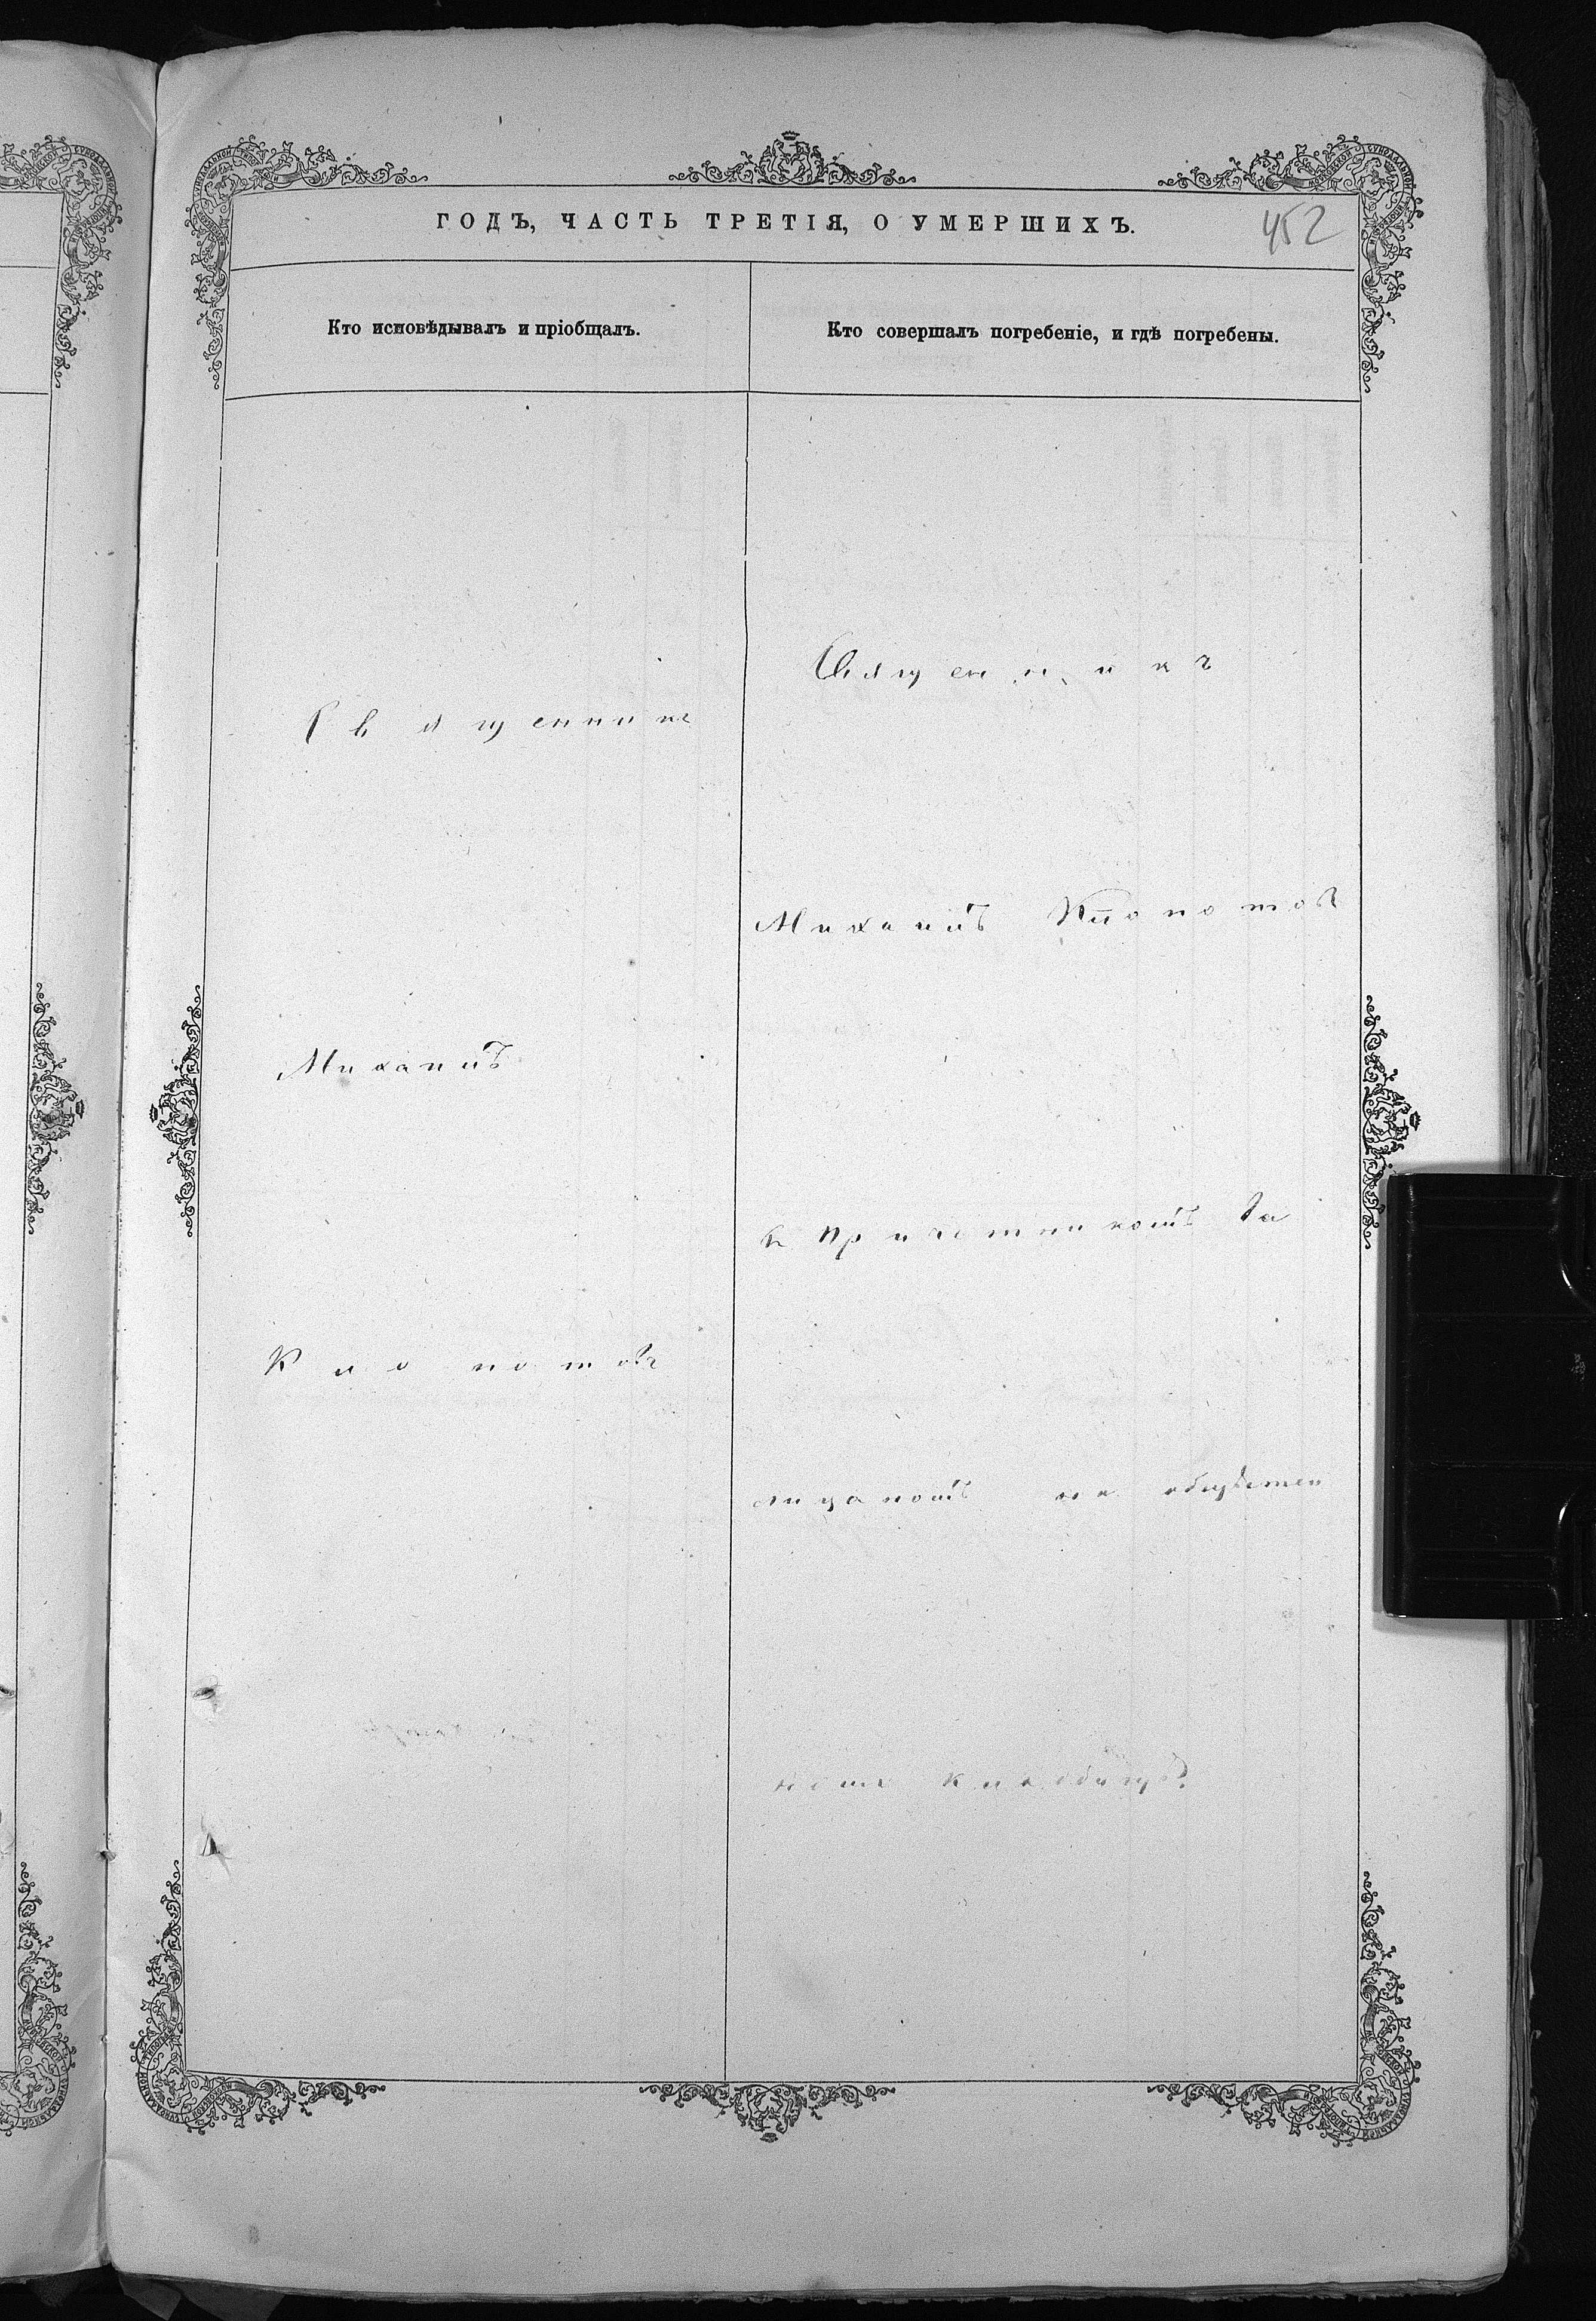 ГОДЪ, ЧАСТЬ ТРЕТІЯ, О УМЕРШИХЪ.
452
Кто исповѣдывалъ и пріобщалъ.
Священникъ
Михаилъ
Клопотовъ
Кто совершалъ погребеніе, и гдѣ погребены.
Священникъ
Михаилъ Клопотовъ
съ причетникомъ Га
лицкомъ на обществен
номъ кладбищѣ.